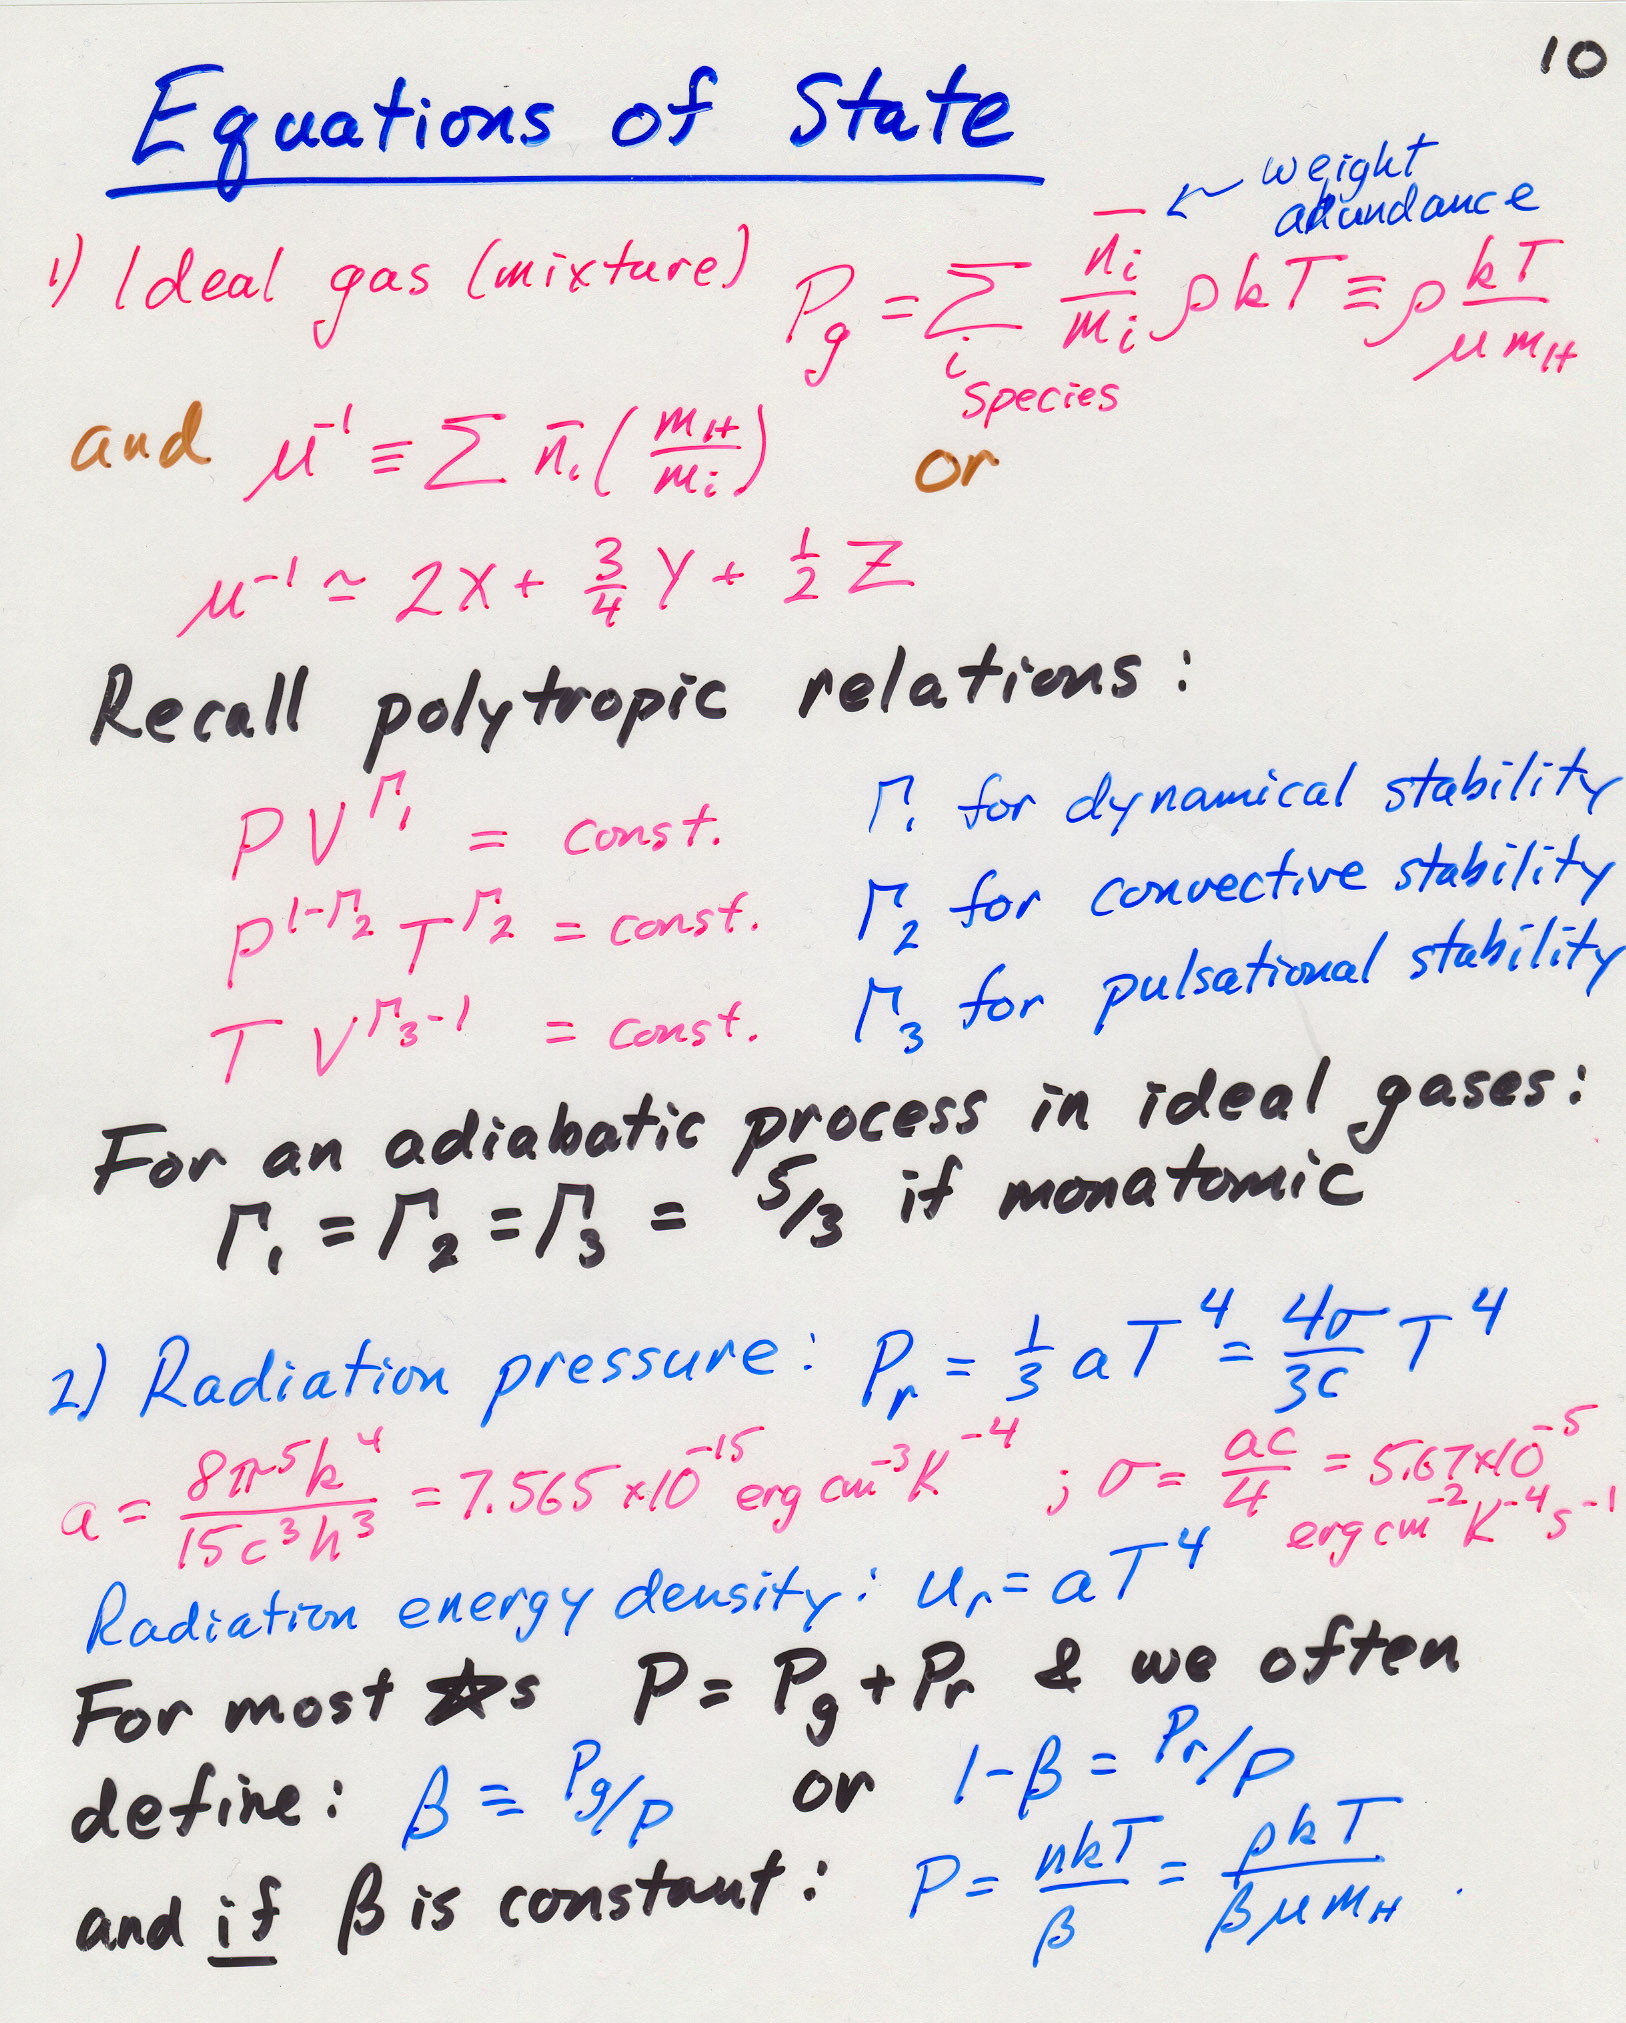 10
Equations of State
weight
abundance
1) Ideal gas (mixture) P_g = Σ_i n̄_i/m_i ρkT ≡ ρ kT/μm_H
species
and μ⁻¹ ≡ Σ n̄_i (m_H/m_i) or
μ⁻¹ ≃ 2X + 3/4 Y + 1/2 Z
Recall polytropic relations:
PV^Γ₁ = const. Γ₁ for dynamical stability
P^(1-Γ₂) T^Γ₂ = const. Γ₂ for convective stability
T V^(Γ₃-1) = const. Γ₃ for pulsational stability
For an adiabatic process in ideal gases:
Γ₁ = Γ₂ = Γ₃ = 5/3 if monatomic
2) Radiation pressure: P_r = 1/3 aT⁴ = 4σ/3c T⁴
a = 8π⁵k⁴/15c³h³ = 7.565 ×10⁻¹⁵ erg cm⁻³ K⁻⁴ ; σ = ac/4 = 5.67×10⁻⁵
erg cm⁻² K⁻⁴ s⁻¹
Radiation energy density: u_r = aT⁴
For most ☆s P = P_g + P_r & we often
define: β ≡ P_g/P or 1-β = P_r/P
and if β is constant: P = nkT/β = ρkT/βμm_H .